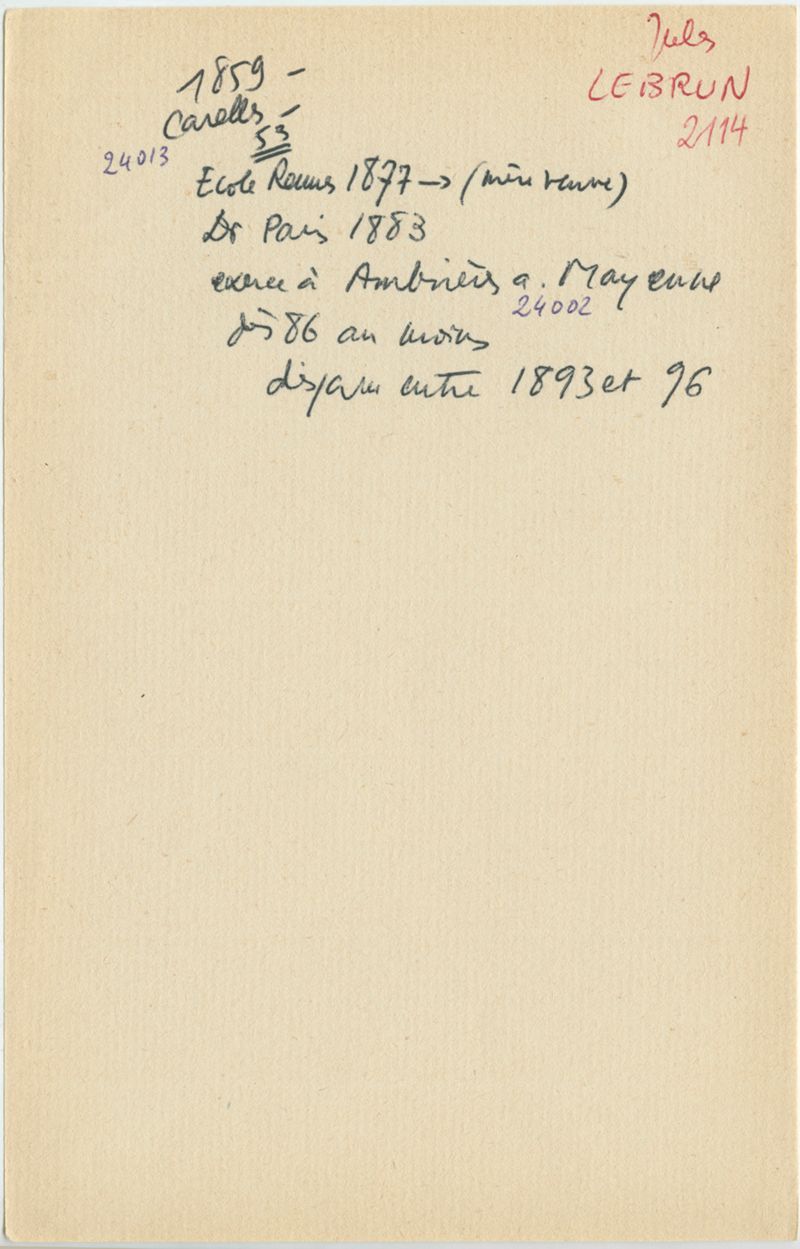 Jules
LEBRUN
2114
1859 -
Carelles -
53
24013
Ecole Rennes 1877 → (mère veuve)
Dr Paris 1883
exerce à Ambrières a. Mayenne
24002
dès 86 au moins
disparu entre 1893 et 96